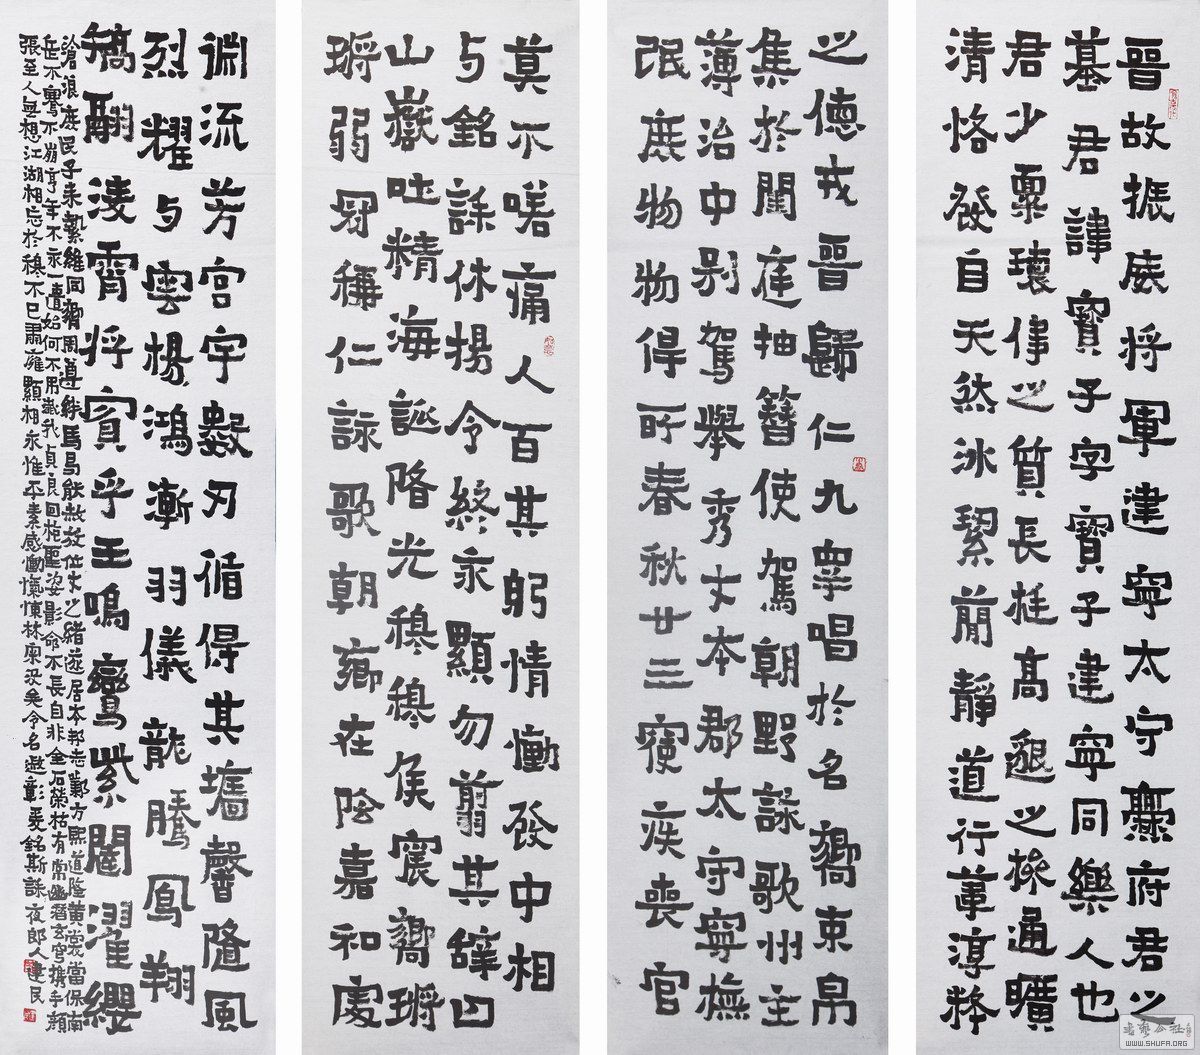 晉故振威將軍建寧太守爨府君之
墓君諱寶子字寶子建寧同樂人也
君少稟瓌偉之質長挺高邈之操通曠
清恪發自天然冰絜簡靜道行葦淳粹
之德戎晉歸仁九皋唱於名嚮束帛
集於閨庭抽簪俟駕朝野詠歌州主
薄治中別駕舉秀才本郡太守寧撫
氓庶物物得所春秋廿三寢疾喪官
莫不嗟痛人百其躬情慟發中相
与銘誄休揚令終永顯勿翦其辭曰
山嶽吐精海誕陼光穆穆侯震嚮鏘
鏘弱冠稱仁詠歌朝鄉在陰嘉和處
淵流芳宮宇數刃循得其墻馨隨風
烈耀与雲揚鴻漸羽儀龍騰鳳翔
矯翮凌霄將賓乎王鳴鸞紫闥濯纓
滄浪庶民子來縶維同嚮周遵絆馬曷能赦放位才之緒遂居本邦志鄴方熙道隆黃裳當保南
岳不騫不崩享年不永一匱始何不弔殲我貞良回枹聖姿影命不長自非金石榮枯有常幽潛玄穹攜手顏
張至人無想江湖相忘於穆不已肅雍顯相永惟平素感慟愾慷林宗沒矣令名遐彰爰銘斯誄夜郎人建民
WWW.SHUFA.ORG